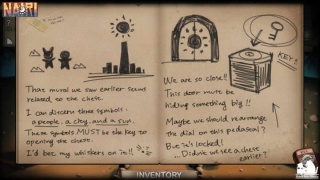 NAIRI
That mural we saw earlier seems
related to the chest.
I can discern three symbols:
a people, a city, and a sun.
These symbols MUST be the key to
opening the chest.
I'd bet my whiskers on it!!
We are so close!!
This door must be
hiding something big!!
Maybe we should rearrange
the dial on this pedestal?
But it's locked!
...Didn't we see a chest
earlier?
KEY!
INVENTORY